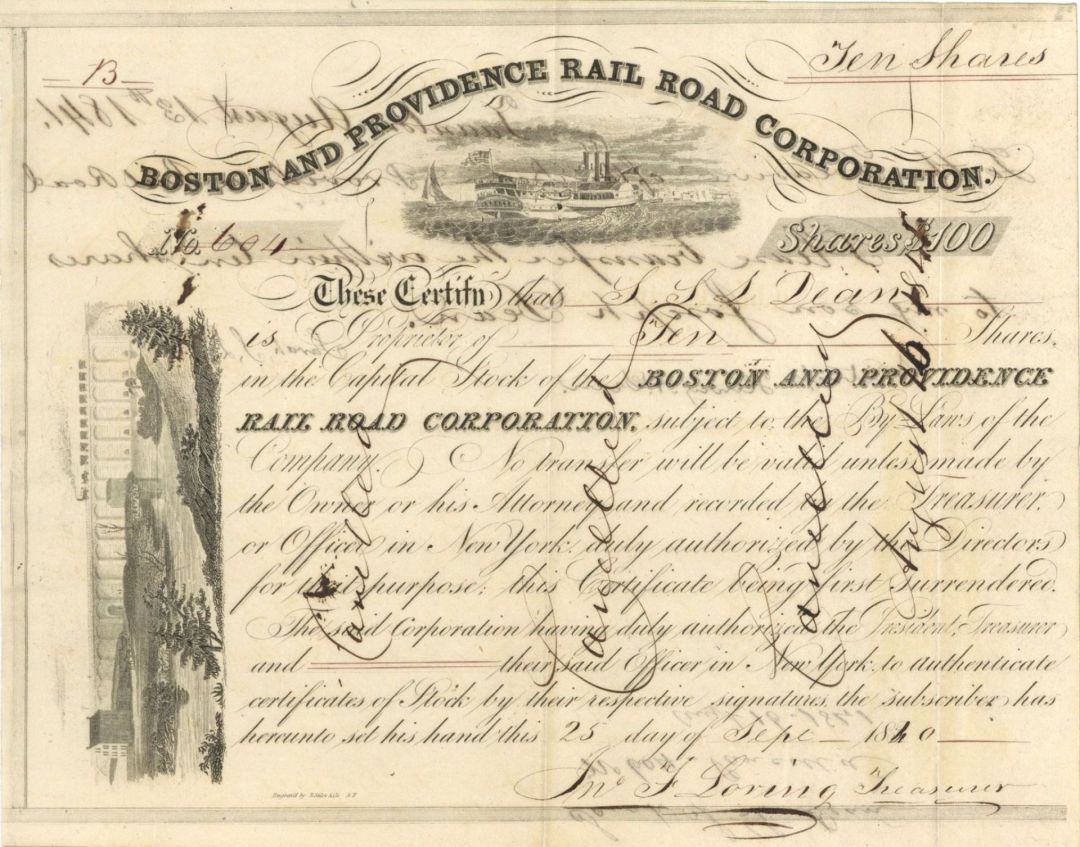 B
Ten Shares
BOSTON AND PROVIDENCE RAIL ROAD CORPORATION.
No. 604
Shares $100
These Certify that S. S. L Dean
is Proprietor of Ten Shares,
in the Capital Stock of the BOSTON AND PROVIDENCE
RAIL ROAD CORPORATION, subject to the By Laws of the
Company. No transfer will be valid unless made by
the Owner or his Attorney and recorded by the Treasurer,
or Officer in New York duly authorized by the Directors
for that purpose; this Certificate being first Surrendered.
The said Corporation having duly authorized the President, Treasurer
and their said Officer in New York to authenticate
certificates of Stock by their respective signatures, the subscriber has
hereunto set his hand this 25 day of Sept 1840
Jno F Loring Treasurer
Engraved by
Cancelled
Cancelled
Cancelled
August 16
August 13th 1841.
transfer the within ten shares
to my son Joseph Dean